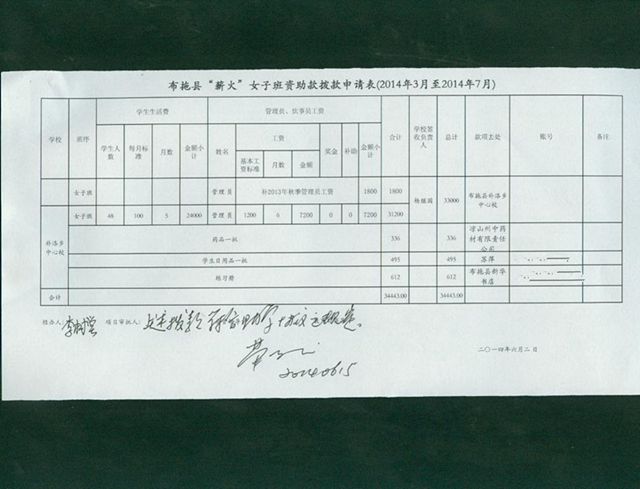 布拖县“薪火”女子班资助款拨款申请表(2014年3月至2014年7月)
学校 班序 学生生活费 管理员、炊事员工资 合计 学校签收负责人 总计 款项去处 账号 备注
学生人数 每月标准 月数 金额小计 姓名 工资 奖金 补助 金额小计
基本工资标准 月数 金额
女子班 管理员 补2013年秋季管理员工资 1800 1800 杨继国 33000 布拖县补洛乡中心校
女子班 48 100 5 24000 管理员 1200 6 7200 0 0 7200 31200
补洛乡中心校
药品一批 336 336 凉山州中药材有限责任公司
学生日用品一批 495 495 苏萍
练习册 612 612 布拖县新华书店
合计 34443.00 34443.00
经办人: 项目审批人:
20140615
二〇一四年六月二日